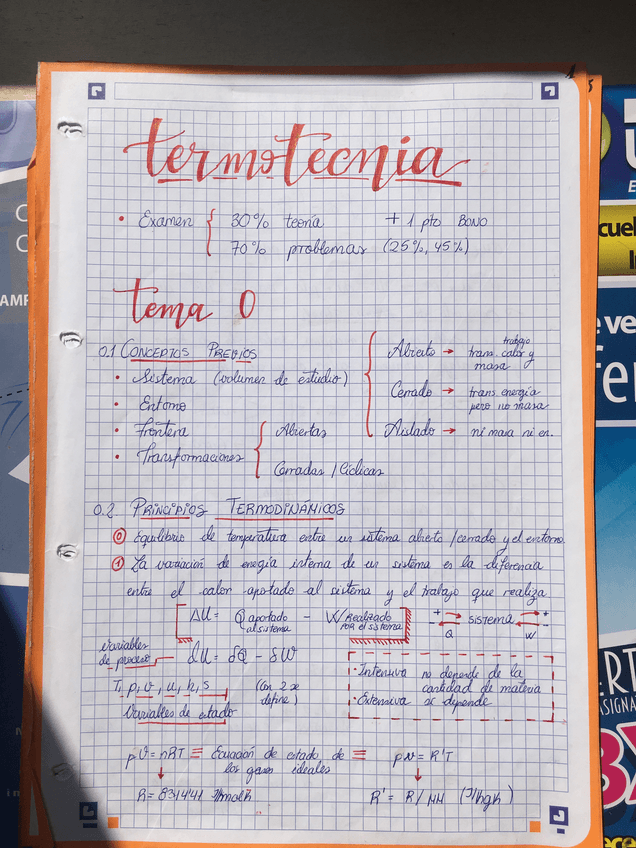 termotecnia
• Examen { 30% teoría + 1 pto BONO
70% problemas (25%, 45%)
tema 0
0.1 CONCEPTOS PREVIOS
• Sistema (volumen de estudio) {
Abierto → trans. calor y trabajo masa
Cerrado → trans. energía pero no masa
Aislado → ni masa ni en.
• Entorno
• Frontera
• Transformaciones { Abiertas
Cerradas / Cíclicas
0.2 PRINCIPIOS TERMODINÁMICOS
⓪ Equilibrio de temperatura entre un sistema abierto / cerrado y el entorno.
① La variación de energía interna de un sistema es la diferencia
entre el calor aportado al sistema y el trabajo que realiza
ΔU = Q aportado al sistema - W realizado por el sistema
+ - Q SISTEMA + - W
variables de proceso — dU = δQ - δW
T, p, v, u, h, s (con 2 se define)
Variables de estado
• Intensiva no depende de la
cantidad de materia
• Extensiva sí depende
pV = nRT ≡ Ecuación de estado de los gases ideales ≡ pv = R'T
R = 8'31441 J/molK
R' = R/MM (J/kgK)